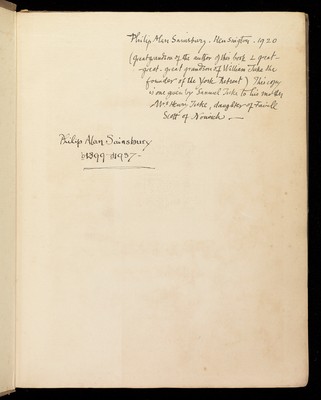 Philip Alan Sainsbury. Kensington. 1920
(great grandson of the author of this book & great-
great-great grandson of William Tuke the
founder of the York Retreat) This copy
is one given by Samuel Tuke to his mother
Mrs Henry Tuke, daughter of Favill
Scott of Norwich. —
Philip Alan Sainsbury
b1899-d1937-